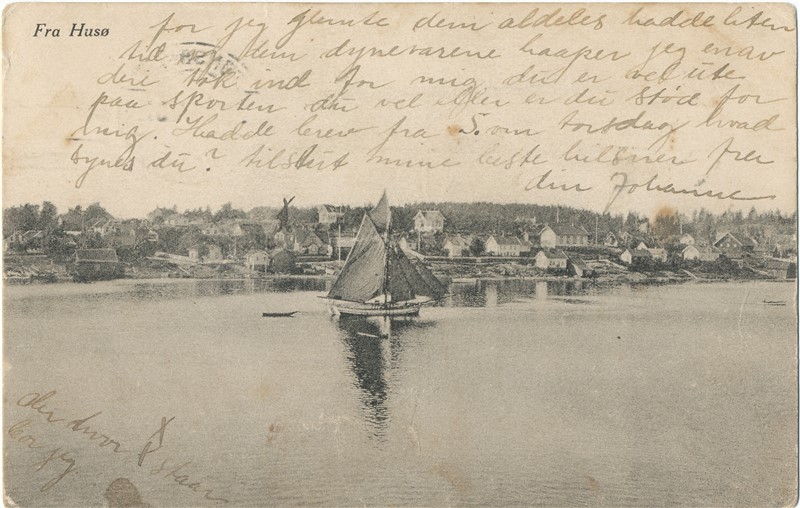 Fra Husø
for jeg glemte dem aldeles hadde liten
tid og dem dynevarene haaper jeg en av
dere tok ind for mig du er vel ute
paa sporten du vel eller er du stød for
mig. Hadde brev fra S. om torsdag hvad
synes du? tilslut mine beste hilsner fra
din Johanne
der hvor X staar
bor jeg